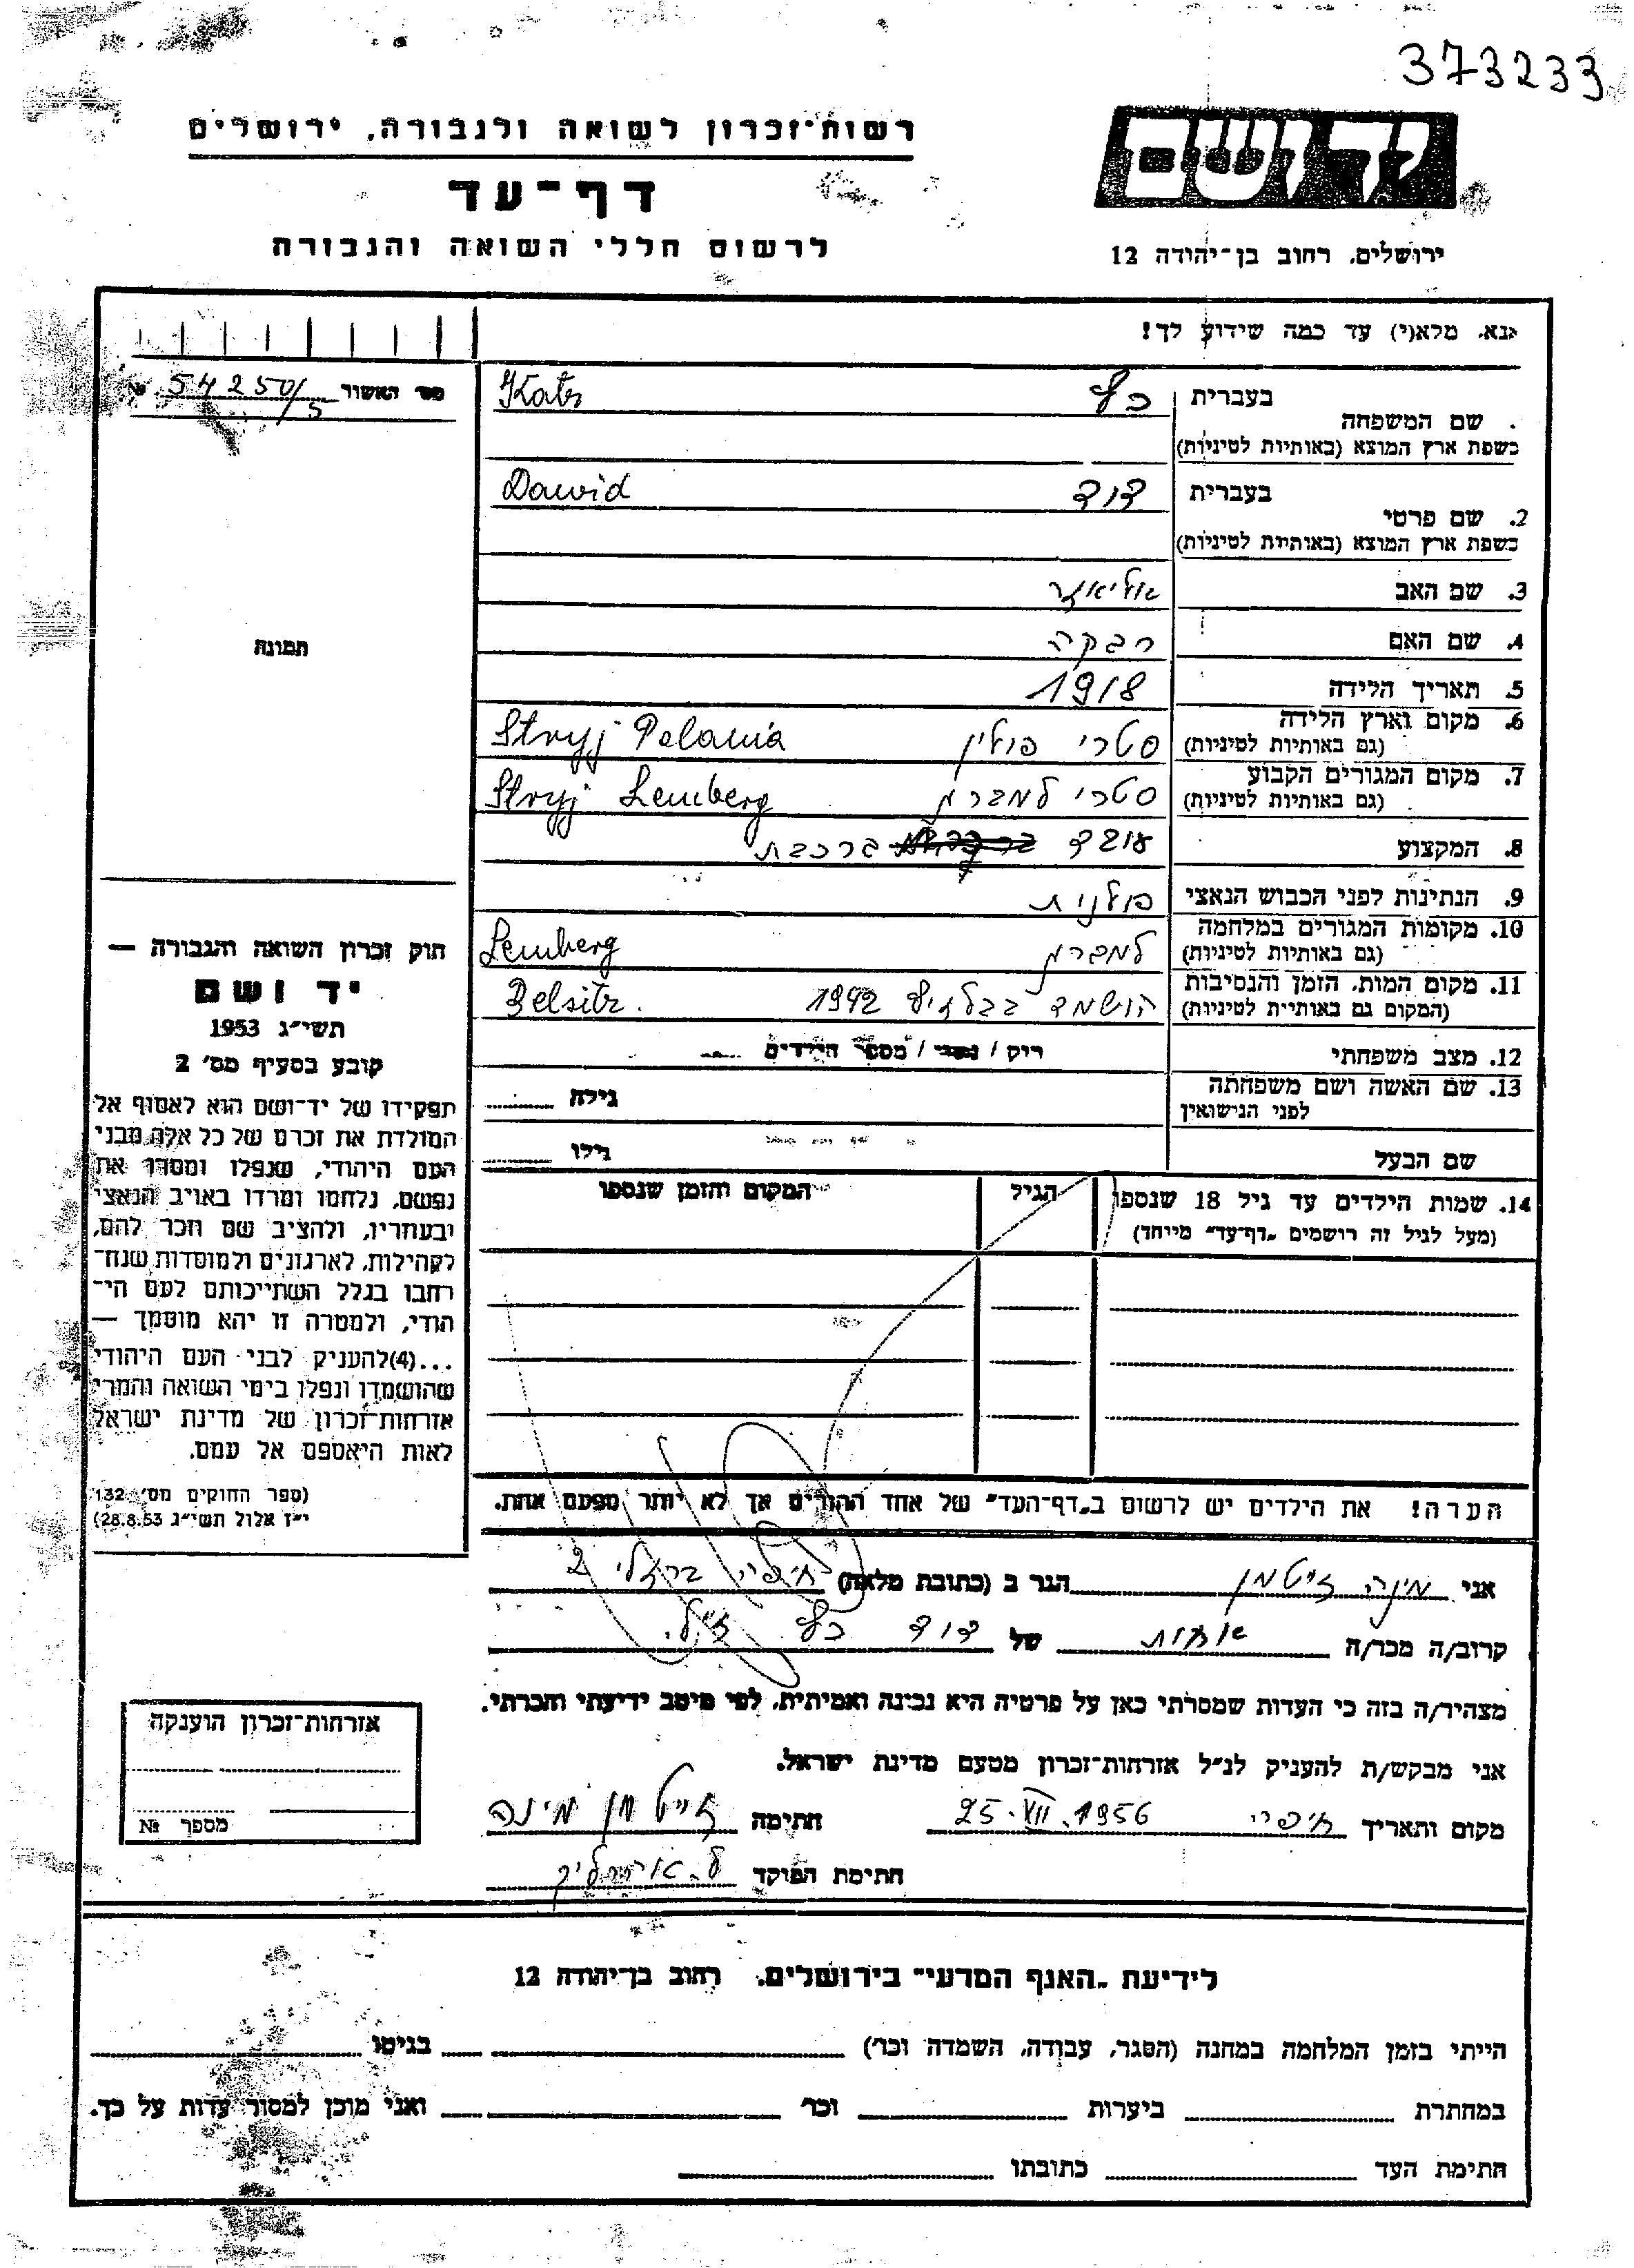 373233
יד ושם
ירושלים. רחוב בן־יהודה 12
רשות־זכרון לשואה ולגבורה, ירושלים
דף־עד
לרשום חללי השואה והגבורה
נא. מלא(י) עד כמה שידוע לך!
מס' האשור № 54250/5
תמונה
1. שם המשפחה בעברית כץ Kats
בשפת ארץ המוצא (באותיות לטיניות)
2. שם פרטי בעברית דוד Dawid
בשפת ארץ המוצא (באותיות לטיניות)
3. שם האב אליאזר
4. שם האם רבקה
5. תאריך הלידה 1918
6. מקום וארץ הלידה סטרי פולין Stryj Polania
(גם באותיות לטיניות)
7. מקום המגורים הקבוע סטרי למברג Stryj Lemberg
(גם באותיות לטיניות)
8. המקצוע עובד ברכבת
9. הנתינות לפני הכבוש הנאצי פולנית
10. מקומות המגורים במלחמה למברג Lemberg
(גם באותיות לטיניות)
11. מקום המות, הזמן והנסיבות הושמד בבלזיץ 1942 Belsitz.
(המקום גם באותיות לטיניות)
12. מצב משפחתי רוק / נשוי / מספר הילדים
13. שם האשה ושם משפחתה גילה
לפני הנישואין
שם הבעל גילו
14. שמות הילדים עד גיל 18 שנספו הגיל המקום והזמן שנספו
(מעל לגיל זה רושמים "דף־עד" מיוחד)
הערה! את הילדים יש לרשום ב"דף־העד" של אחד ההורים אך לא יותר מפעם אחת.
חוק זכרון השואה והגבורה —
יד ושם
תשי"ג 1953
קובע בסעיף מס' 2
תפקידו של יד־ושם הוא לאסוף אל
המולדת את זכרם של כל אלה מבני
העם היהודי, שנפלו ומסרו את
נפשם, נלחמו ומרדו באויב הנאצי
ובעוזריו, ולהציב שם וזכר להם,
לקהילות, לארגונים ולמוסדות שנח־
רבו בגלל השתייכותם לעם הי־
הודי, ולמטרה זו יהא מוסמך —
...(4)להעניק לבני העם היהודי
שהושמדו ונפלו בימי השואה והמרי
אזרחות־זכרון של מדינת ישראל
לאות היאספם אל עמם.
(ספר החוקים מס' 132
י"ז אלול תשי"ג 28.8.53)
אני מינה זיטמן הגר ב (כתובת מלאה) חיפה ברזלי 2
קרוב/ה מכר/ה אחות של דוד כץ ז"ל.
מצהיר/ה בזה כי העדות שמסרתי כאן על פרטיה היא נכונה ואמיתית, לפי מיטב ידיעתי והכרתי.
אני מבקש/ת להעניק לנ"ל אזרחות־זכרון מטעם מדינת ישראל.
מקום ותאריך חיפה 25.VII.1956 חתימה זיטמן מינה
חתימת הפוקד
אזרחות־זכרון הוענקה
מספר №
לידיעת "האגף המדעי" בירושלים. רחוב בן־יהודה 12
הייתי בזמן המלחמה במחנה (הסגר, עבודה, השמדה וכו') בגיטו
במחתרת ביערות וכו' ואני מוכן למסור עדות על כך.
חתימת העד כתובתו